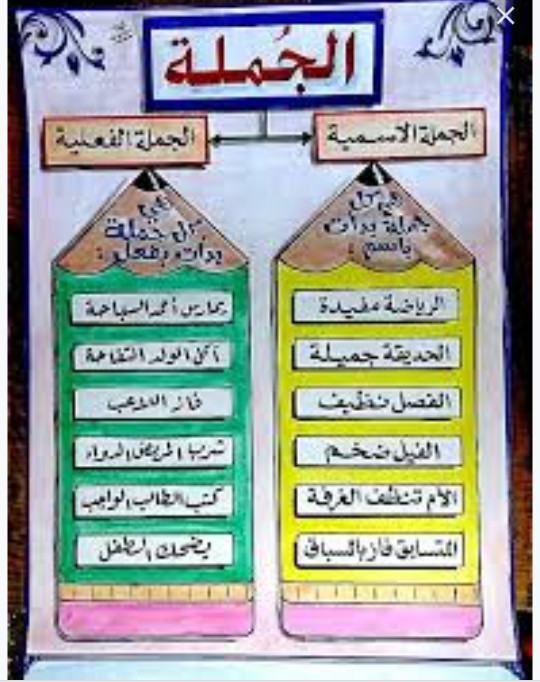 الجُملة
الجملة الاسمية
هي كل
جملة بدأت
باسم :
الرياضة مفيدة
الحديقة جميلة
الفصل نظيف
الفيل ضخم
الأم تنظف الغرفة
المتسابق فاز بالسباق
الجملة الفعلية
هي
كل جملة
بدأت بفعل :
يمارس أحمد السباحة
أكل الولد التفاحة
فاز اللاعب
شرب المريض الدواء
كتب الطالب الواجب
يضحك الطفل